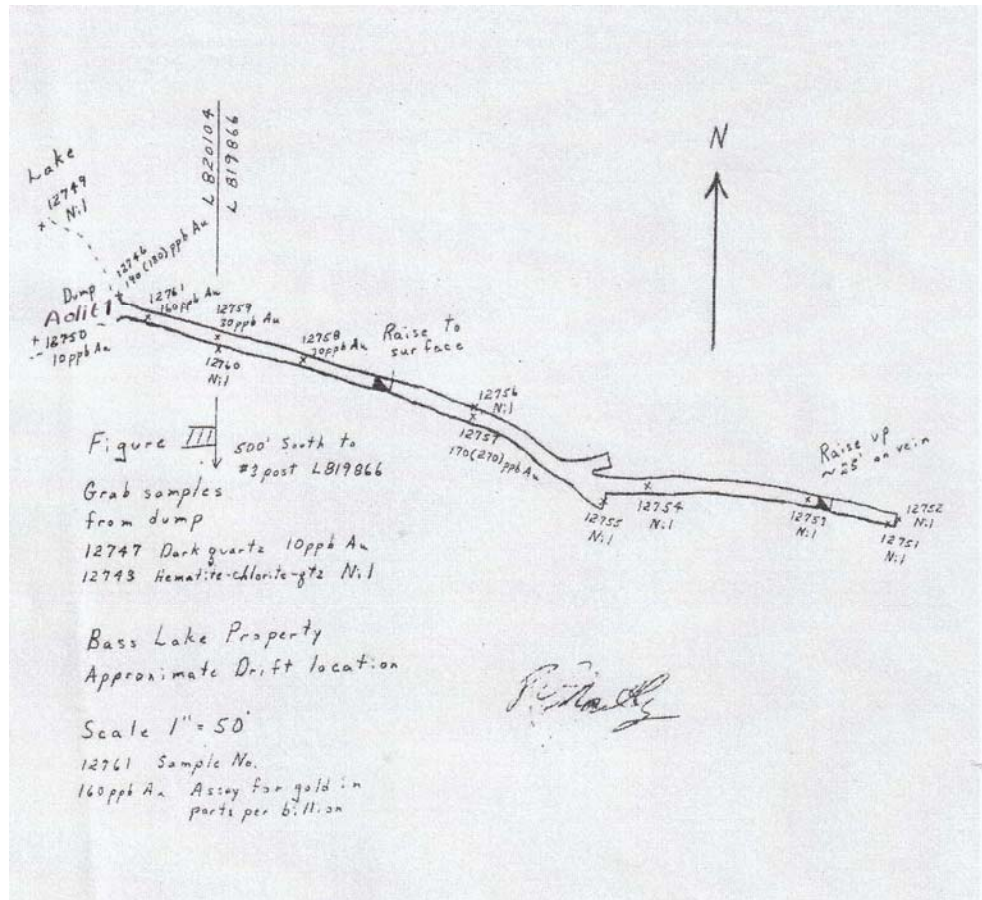 L 820104
L 819866
N
Lake
12749
Nil
12746
190(180)ppb Au
Dump
Adit 1
12750
10ppb Au
12761
160ppb Au
12759
30ppb Au
12760
Nil
12758
Raise to
surface
12756
Nil
12757
170(270)ppb Au
Raise up
~25' on vein
12755
Nil
12754
Nil
12753
Nil
12752
Nil
12751
Nil
Figure III
500' South to
#3 post L819866
Grab samples
from dump
12747 Dark quartz 10ppb Au
12748 Hematite-chlorite-qtz Nil
Bass Lake Property
Approximate Drift location
Scale 1" = 50'
12761 Sample No.
160ppb Au Assay for gold in
parts per billion